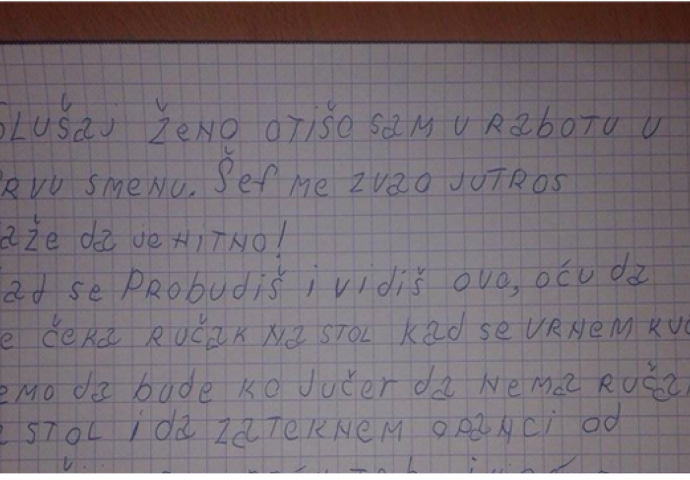 SLUŠAJ ŽENO OTIŠO SAM U RABOTU U
RVU SMENU. ŠEF ME ZVAO JUTROS
AŽE DA JE HITNO!
AD SE PROBUDIŠ I VIDIŠ OVO, OĆU DA
E ČEKA RUČAK NA STOL KAD SE VRNEM KUĆ
EMO DA BUDE KO JUČER DA NEMA RUČA
STOL I DA ZATEKNEM OPANCI OD